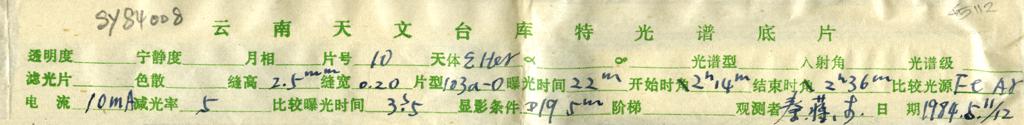 SY84008
云南天文台库特光谱底片
透明度 宁静度 月相 片号 10 天体 α ∞ 光谱型 入射角 光谱级
滤光片 色散 缝高 2.5mm 缝宽 0.20 片型 103a-O 曝光时间 22m 开始时 2h14m 结束时 2h36m 比较光源 Fe Ar
电流 10mA 减光率 5 比较曝光时间 3.5s 显影条件 D19 5m 阶梯 观测者 日期 1984.5.11/12